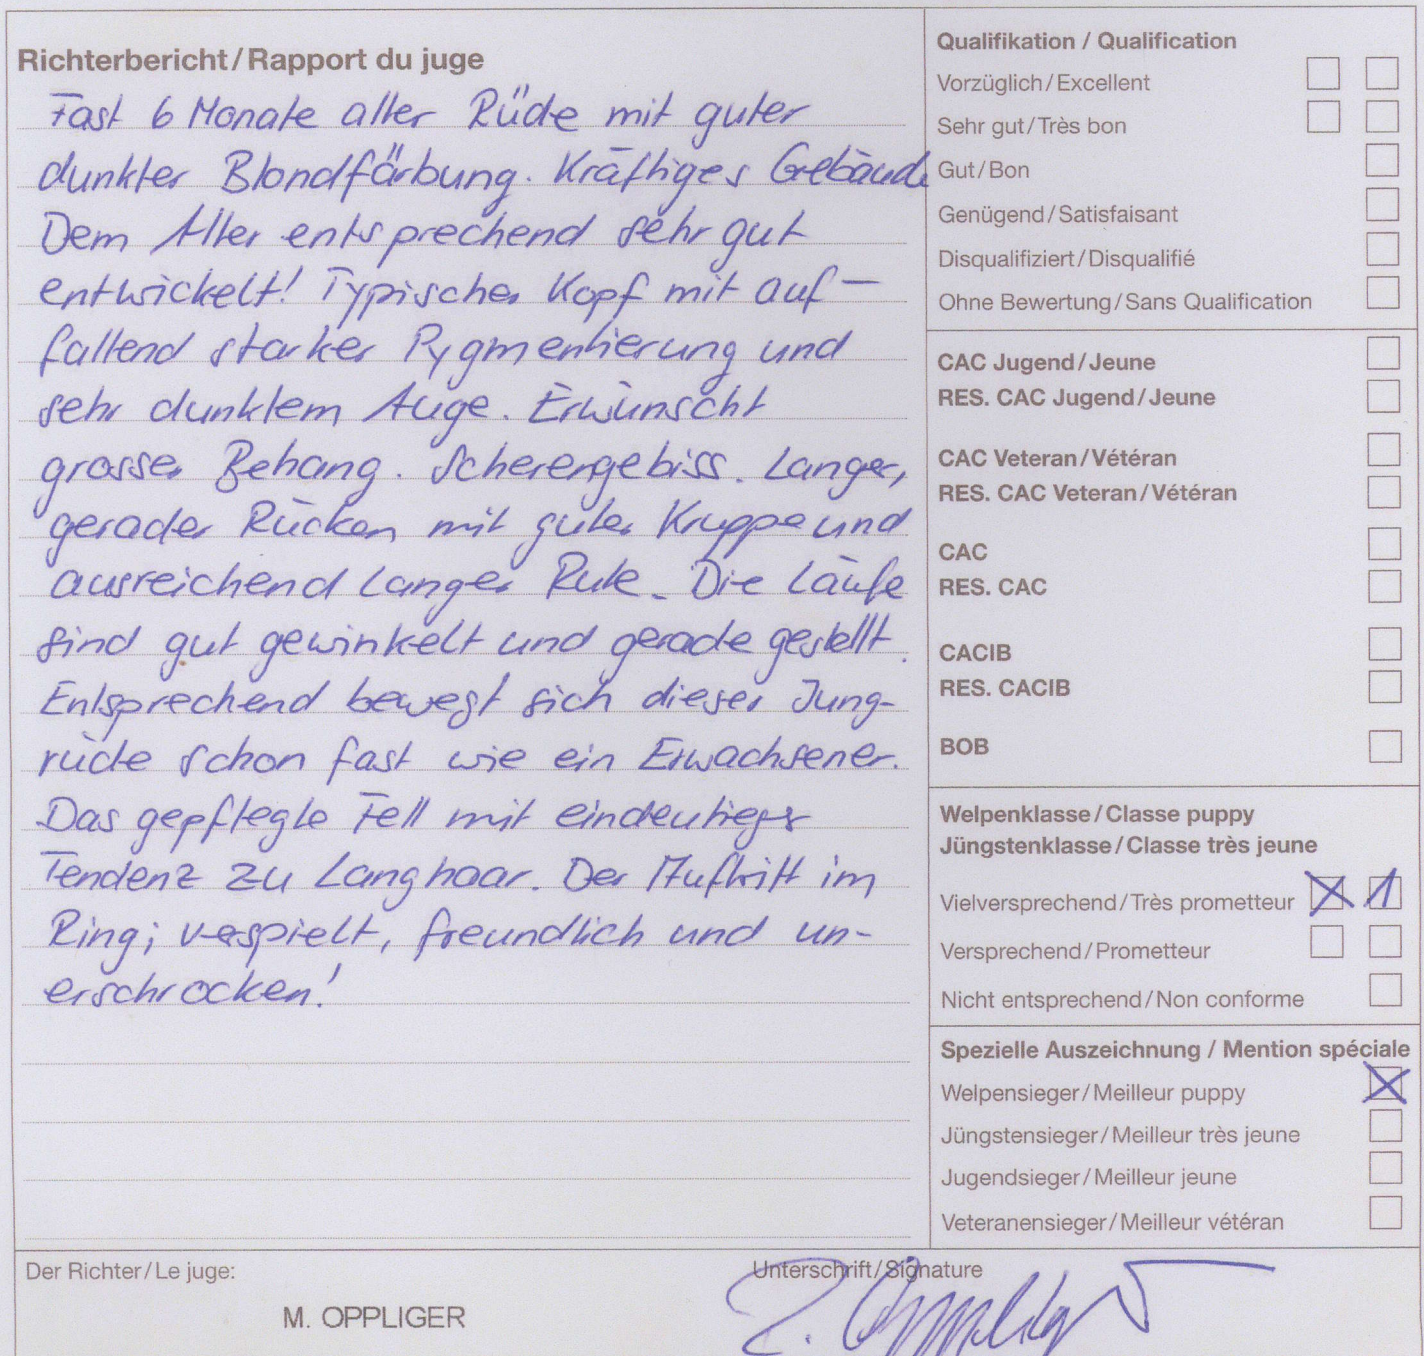 Richterbericht/Rapport du juge
Fast 6 Monate alter Rüde mit guter
dunkler Blondfärbung. Kräftiges Gebäude
Dem Alter entsprechend sehr gut
entwickelt! Typischer Kopf mit auf-
fallend starker Pygmentierung und
sehr dunklem Auge. Erwünscht
grosser Behang. Scherengebiss. Langer,
gerader Rücken mit guter Kruppe und
ausreichend langer Rute. Die Läufe
sind gut gewinkelt und gerade gestellt.
Entsprechend bewegt sich dieser Jung-
rüde schon fast wie ein Erwachsener.
Das gepflegte Fell mit eindeutiger
Tendenz zu Langhaar. Der Auftritt im
Ring; verspielt, freundlich und un-
erschrocken!
Qualifikation / Qualification
Vorzüglich/Excellent
Sehr gut/Très bon
Gut/Bon
Genügend/Satisfaisant
Disqualifiziert/Disqualifié
Ohne Bewertung/Sans Qualification
CAC Jugend/Jeune
RES. CAC Jugend/Jeune
CAC Veteran/Vétéran
RES. CAC Veteran/Vétéran
CAC
RES. CAC
CACIB
RES. CACIB
BOB
Welpenklasse/Classe puppy
Jüngstenklasse/Classe très jeune
Vielversprechend/Très prometteur X 1
Versprechend/Prometteur
Nicht entsprechend/Non conforme
Spezielle Auszeichnung / Mention spéciale
Welpensieger/Meilleur puppy X
Jüngstensieger/Meilleur très jeune
Jugendsieger/Meilleur jeune
Veteranensieger/Meilleur vétéran
Der Richter/Le juge:
M. OPPLIGER
Unterschrift/Signature